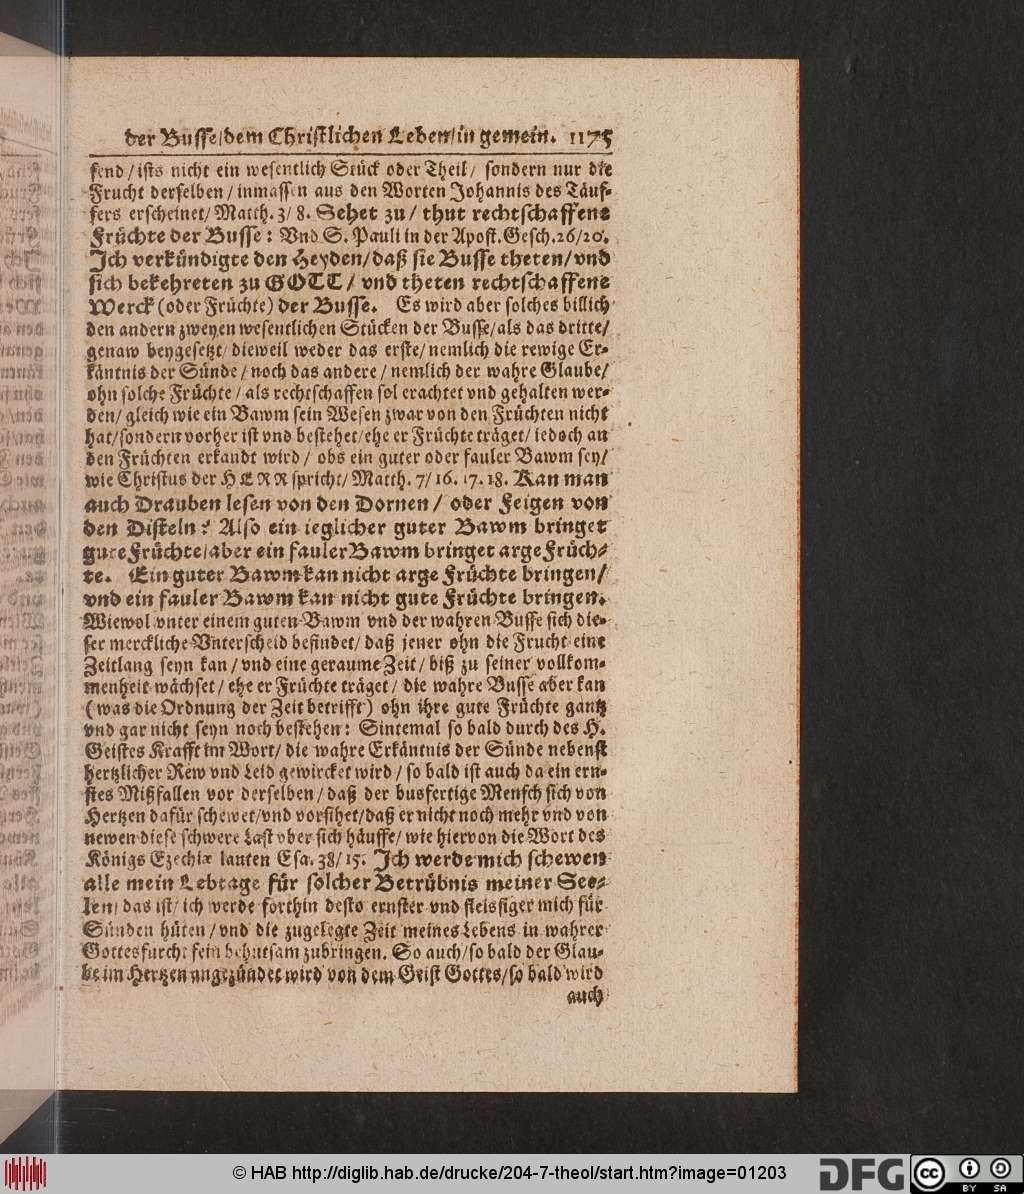 der Busse/dem Christlichen Leben/in gemein. 1175
send/ ists nicht ein wesentlich Stück oder Theil/ sondern nur die
Frucht derselben/ inmassen aus den Worten Johannis des Täuf-
fers erscheinet/ Matth. 3/ 8. Sehet zu/ thut rechtschaffene
Früchte der Busse: Vnd S. Pauli in der Apost. Gesch. 26/20.
Ich verkündigte den Heyden/daß sie Busse theten/vnd
sich bekehreten zu GOTT/ vnd theten rechtschaffene
Werck (oder Früchte) der Busse. Es wird aber solches billich
den andern zweyen wesentlichen Stücken der Busse/als das dritte/
genaw beygesetzt/ dieweil weder das erste/ nemlich die rewige Er-
käntnis der Sünde/ noch das andere/ nemlich der wahre Glaube/
ohn solche Früchte/ als rechtschaffen sol erachtet vnd gehalten wer-
den/ gleich wie ein Bawm sein Wesen zwar von den Früchten nicht
hat/sondern vorher ist vnd bestehet/ehe er Früchte träget/ iedoch an
den Früchten erkandt wird/ obs ein guter oder fauler Bawm sey/
wie Christus der HERR spricht/ Matth. 7/ 16. 17. 18. Kan man
auch Drauben lesen von den Dornen/ oder Feigen von
den Disteln? Also ein ieglicher guter Bawm bringet
gute Früchte/aber ein fauler Bawm bringet arge Früch-
te. Ein guter Bawm kan nicht arge Früchte bringen/
vnd ein fauler Bawm kan nicht gute Früchte bringen.
Wiewol vnter einem guten Bawm vnd der wahren Busse sich die-
ser merckliche Vnterscheid befindet/ daß jener ohn die Frucht eine
Zeitlang seyn kan/ vnd eine geraume Zeit/ biß zu seiner vollkom-
menheit wächset/ ehe er Früchte träget/ die wahre Busse aber kan
(was die Ordnung der Zeit betrifft) ohn ihre gute Früchte gantz
vnd gar nicht seyn noch bestehen: Sintemal so bald durch des H.
Geistes Krafft im Wort/ die wahre Erkäntnis der Sünde nebenst
hertzlicher Rew vnd Leid gewircket wird/ so bald ist auch da ein ern-
stes Mißfallen vor derselben/ daß der busfertige Mensch sich von
Hertzen dafür schewet/vnd vorsihet/daß er nicht noch mehr vnd von
newen diese schwere Last vber sich häuffe/ wie hiervon die Wort des
Königs Ezechiæ lauten Esa. 38/ 15. Ich werde mich schewen
alle mein Lebtage für solcher Betrübnis meiner See-
len/ das ist/ ich werde forthin desto ernster vnd fleissiger mich für
Sünden hüten/ vnd die zugelegte Zeit meines Lebens in wahrer
Gottesfurcht fein behutsam zubringen. So auch/so bald der Glau-
be im Hertzen angezündet wird von dem Geist Gottes/so bald wird
auch
© HAB http://diglib.hab.de/drucke/204-7-theol/start.htm?image=01203
DFG
cc BY SA